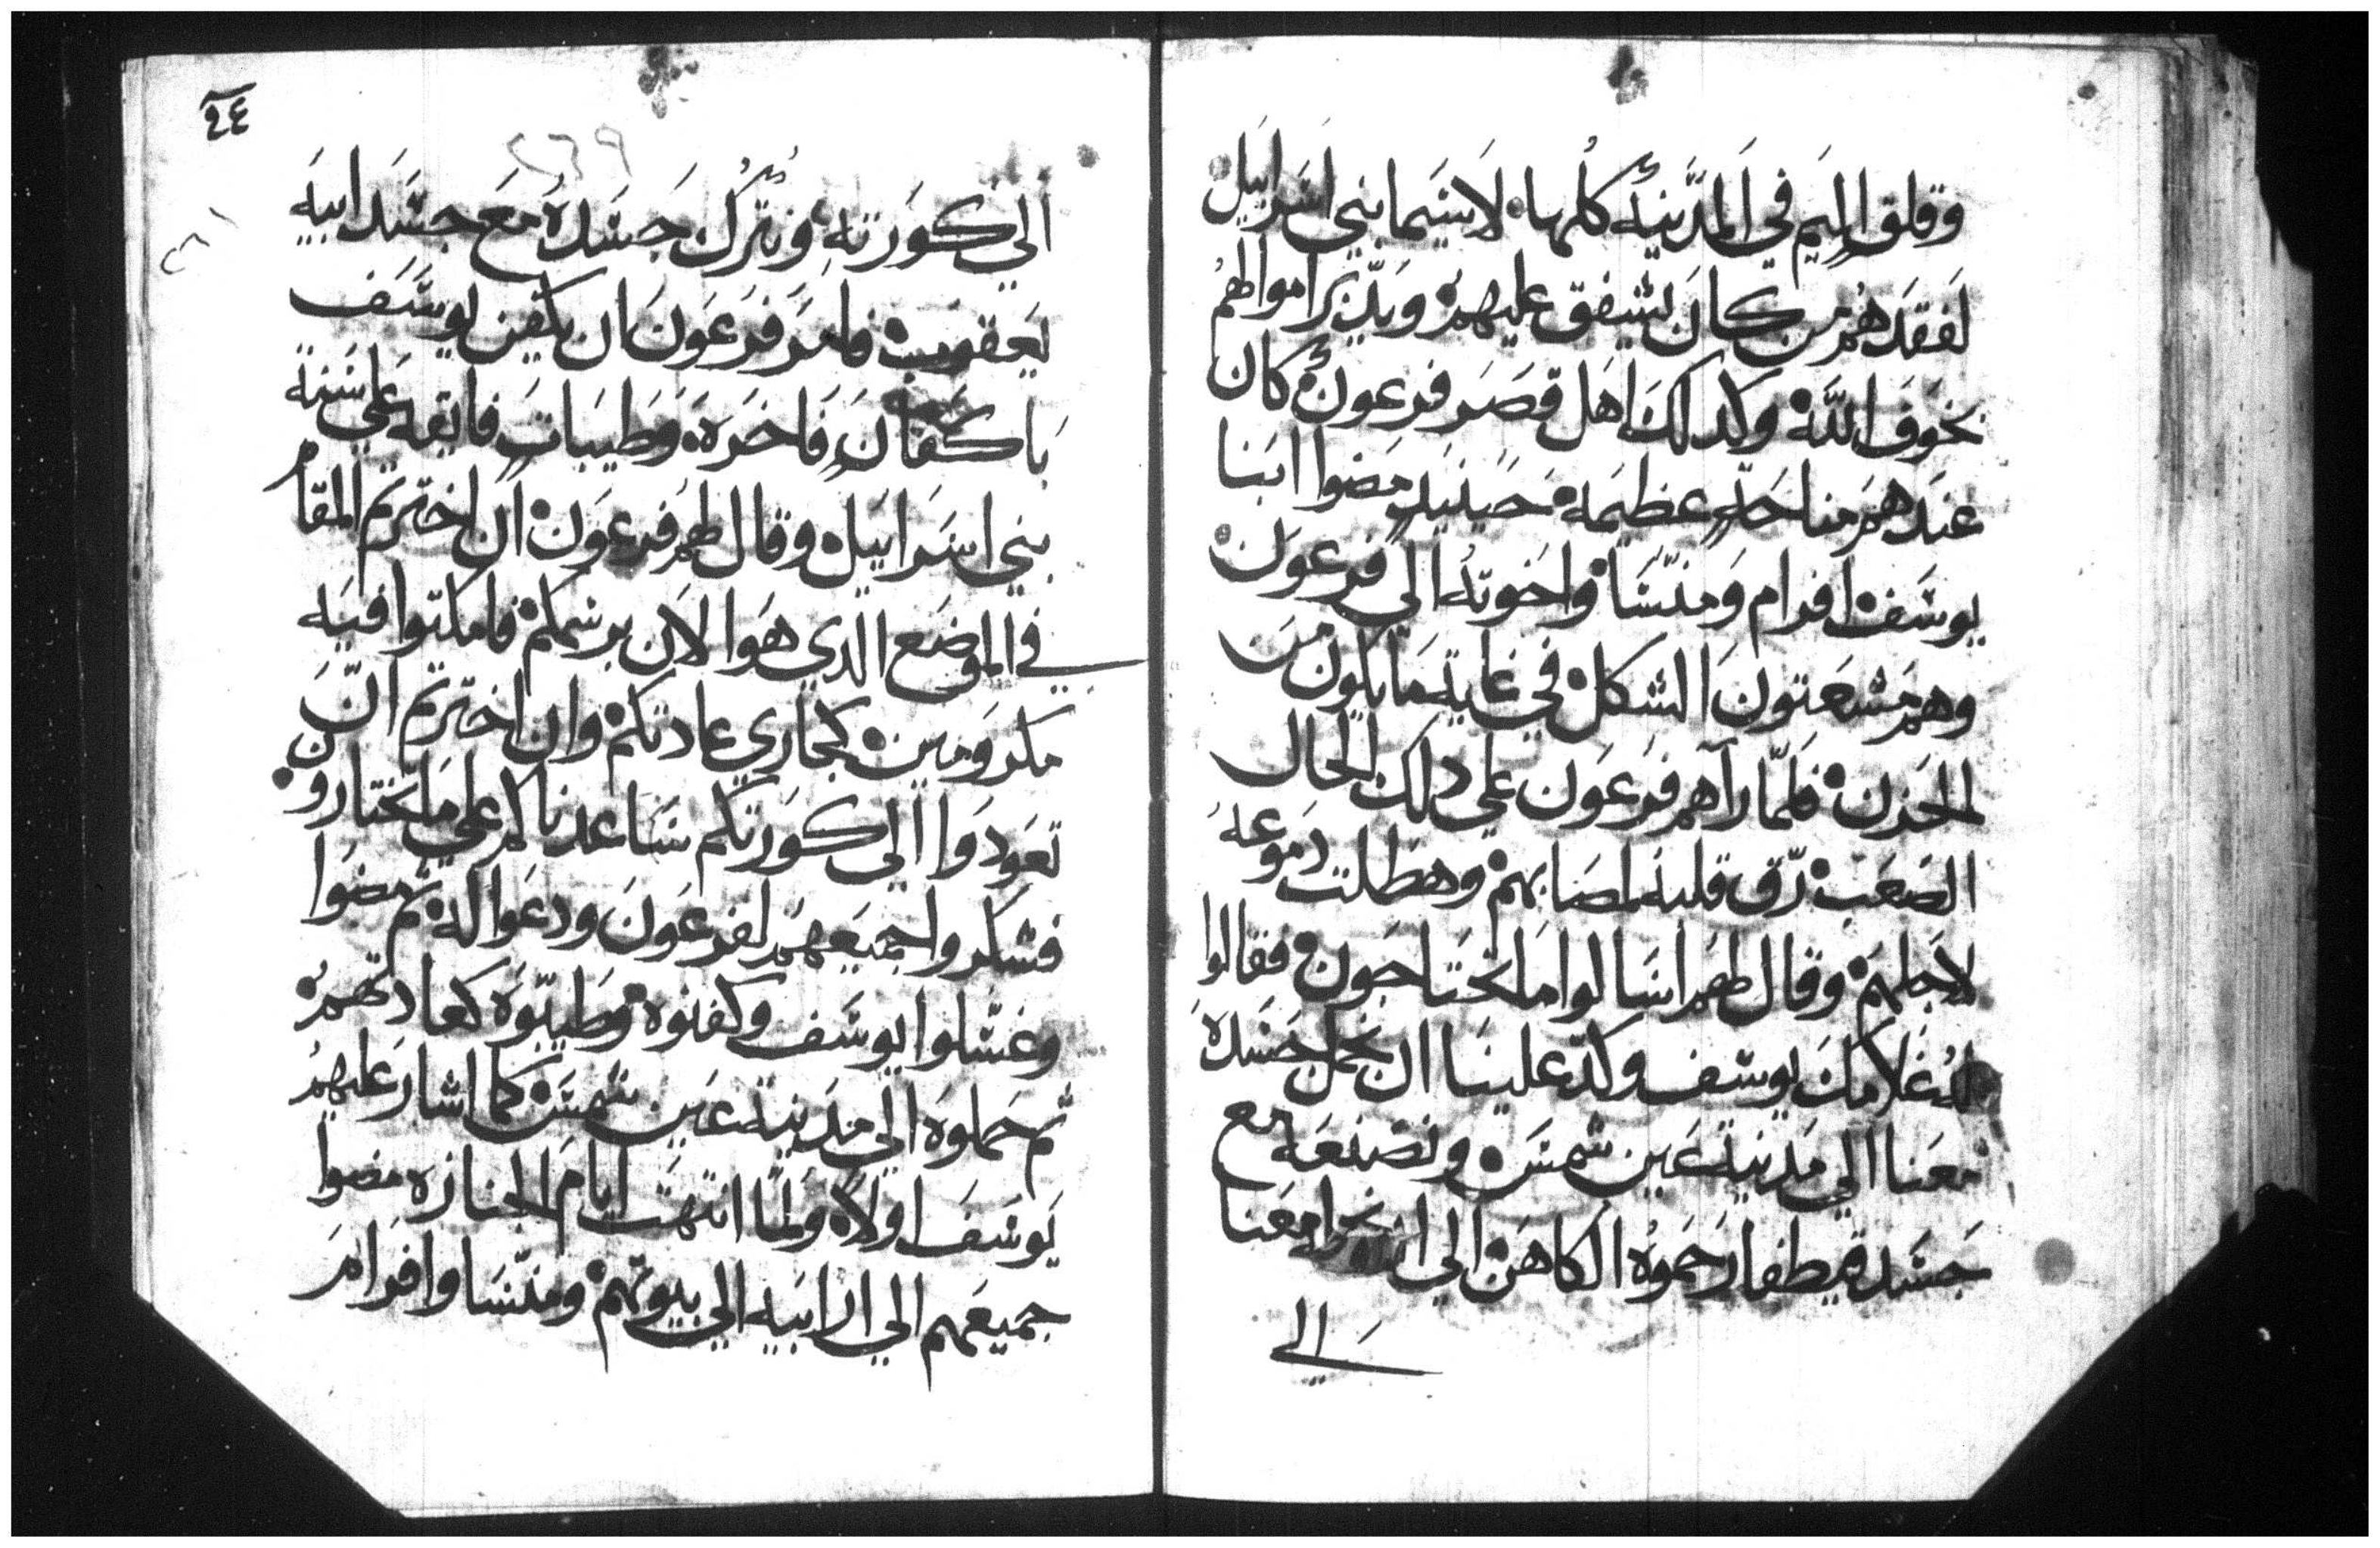 وقلق اليم في المدينه كلها لاسيما بني اسراييل
لفقدهم من كان يشفق عليهم ويدبر امرا موالهم
بخوف الله وكدلك اهل قصر فرعون كان
عندهم مناحه عظيمه حينيد مضوا ابنا
يوسف افرام ومنسا واخوته الي فرعون
وهم مشعتون الشكل في غاية ما يكون من
الحزن فلما راهم فرعون علي دلك الحال
الصعب رق قلبه لمصابهم وهطلت دموعه
لاجلهم وقال لهم اسالوا ما تحتاجون فقالوا
له غلامك يوسف وكد علينا ان نحمل جسده
معنا الي مدينة عين شمس ونصنعه مع
جسد قيطفار حموه الكاهن الي ان معنا
الي
٢٤
٢٦٩
الي كورته ونترك جسده مع جسد ابيه
يعقوب فامر فرعون ان يكفن يوسف
باكفان فاخره وطيبات فايقه علي سنة
بني اسراييل وقال لهم فرعون ان اخترتم المقام
في الموضع الدي هوا الان برسمكم فامكتوا فيه
مكرومين كجاري عادتكم وان اخترتم ان
تعودوا الي كورتكم ساعدناكم علي ما تختارون
فشكروا جميعهم لفرعون ودعوا له تم مضوا
وغسلوا يوسف وكفنوه وطيبوه كعادتهم
تم حملوه الي مدينة عين شمس كما اشار عليهم
يوسف اولا ولما انتهت ايام الجنازه مضوا
جميعهم الي الرابيه الي بيوتهم ومنسا وافرام